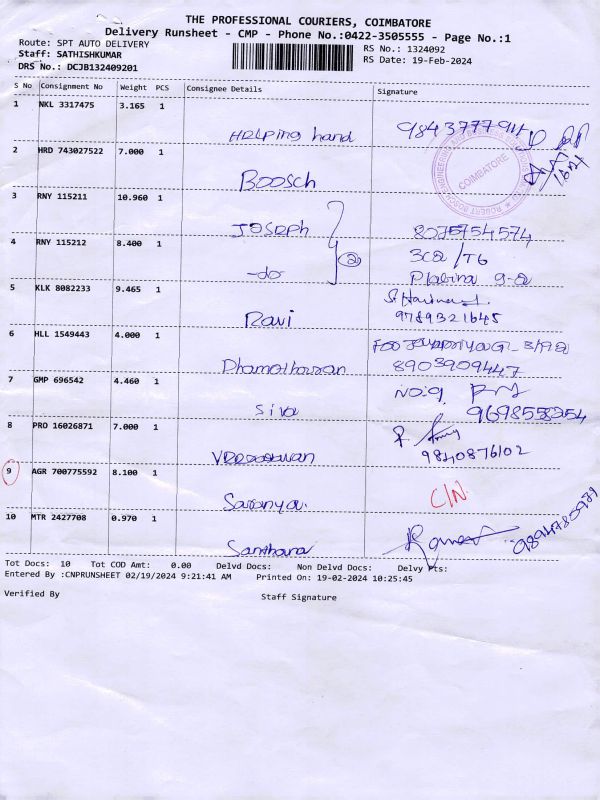 THE PROFESSIONAL COURIERS, COIMBATORE
Delivery Runsheet - CMP - Phone No.:0422-3505555 - Page No.:1
Route: SPT AUTO DELIVERY
RS No.: 1324092
Staff: SATHISHKUMAR
RS Date: 19-Feb-2024
DRS No.: DCJB132409201
S No Consignment No Weight PCS Consignee Details Signature
1 NKL 3317475 3.165 1
HELping hand
2 HRD 743027522 7.000 1
BOOSCH
COIMBATORE
3 RNY 115211 10.960 1
JOSEPH 8075754574
4 RNY 115212 8.400 1
-do- 2 3C2/T6
9-2
5 KLK 8082233 9.465 1
Ravi 9789321645
6 HLL 1549443 4.000 1
8903909447
7 GMP 696542 4.460 1 NO:9
Siva
8 PRO 16026871 7.000 1
9840876102
9 AGR 700775592 8.100 1
Saranya C/N
10 MTR 2427708 0.970 1
Santhana 9894780971
Tot Docs: 10 Tot COD Amt: 0.00 Delvd Docs: Non Delvd Docs: Delvy Pts:
Entered By :CNPRUNSHEET 02/19/2024 9:21:41 AM Printed On: 19-02-2024 10:25:45
Verified By Staff Signature